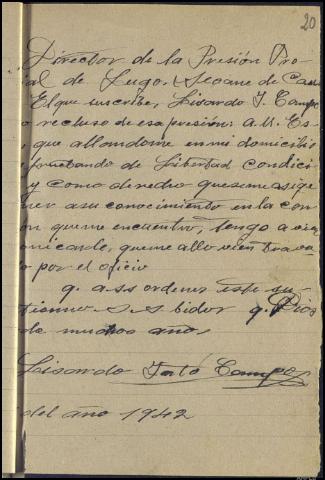 20
Director de la Presión Pro
ial de Lugo. Seoane de Ca
El que suscribe, Lisardo T. Campo
o recluso de esa presión: a. U. Es
que allandome en mi domicilio
frutando de Libertad condici
y como de redro que se me asige
ner a su conocimiento en la con
ón que me encuentro, tengo a vien
nicarle, que me allo vien trava
o por el oficio
q. a ss ordenes este su
tienno S. S bidor q. Dios
de muchos años,
Lisardo Tató Campo
del año 1942